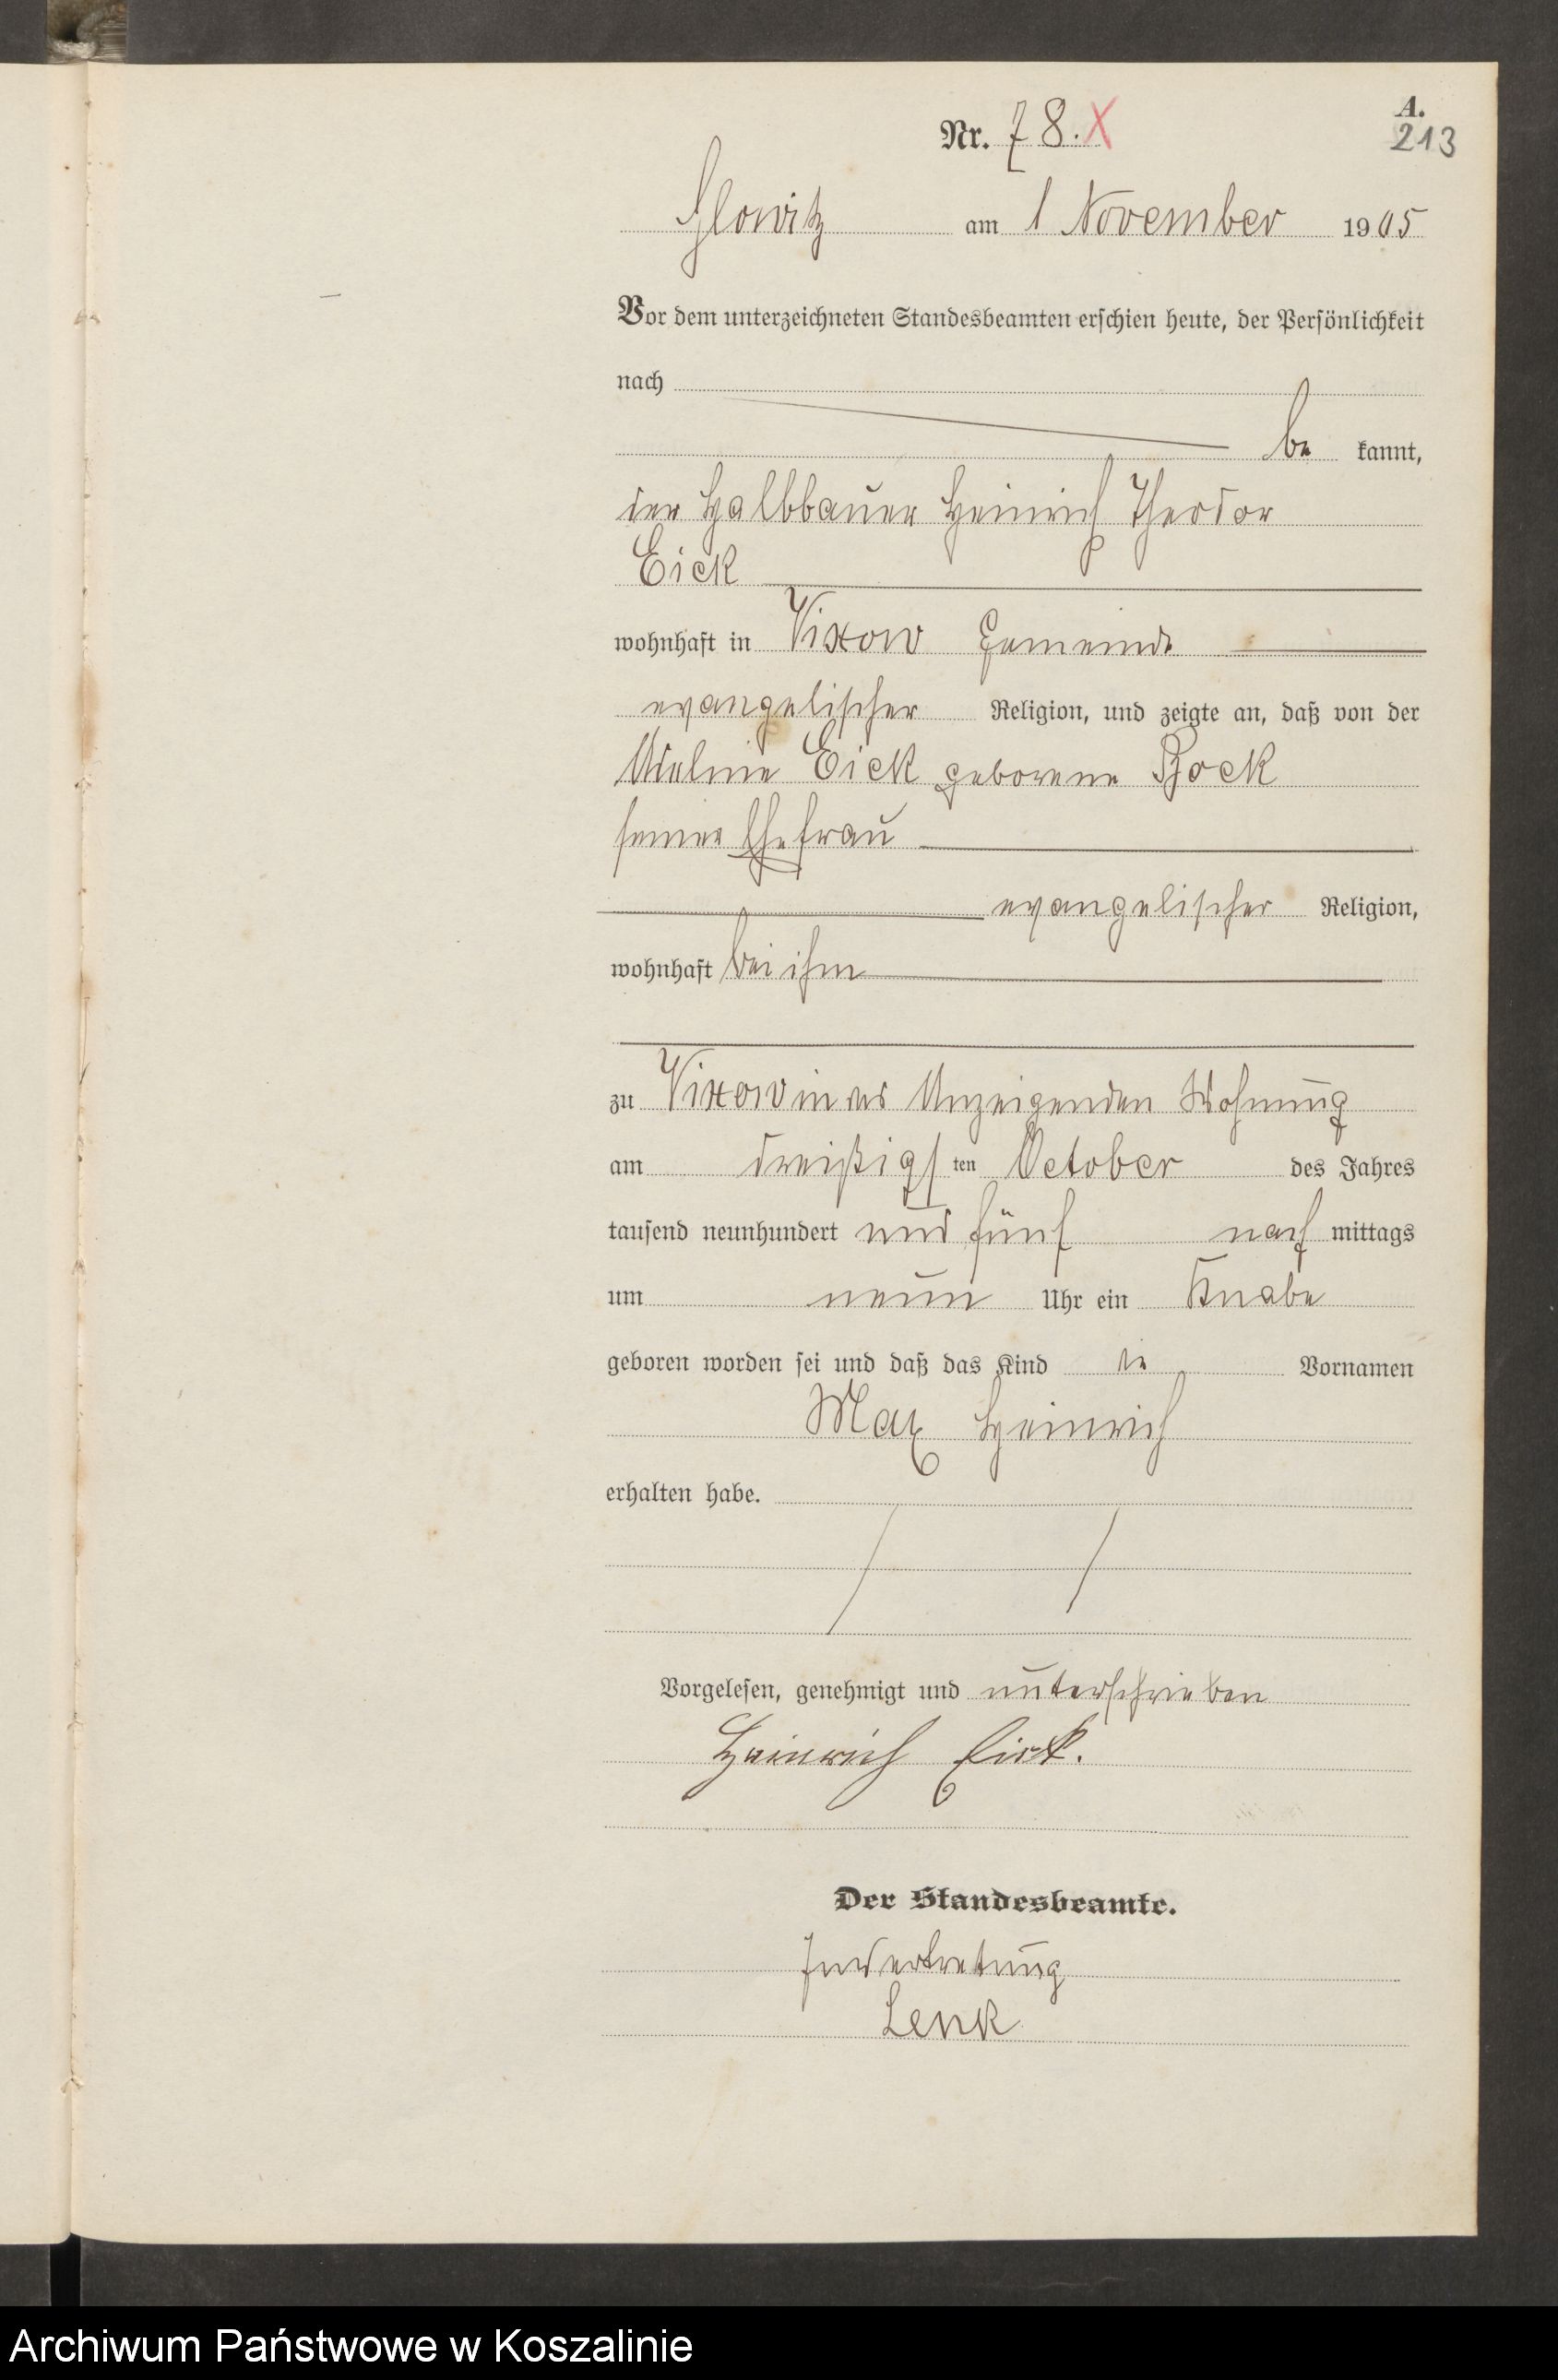 A.
Nr. 78. X
213
Glowitz am 1 November 1905
Vor dem unterzeichneten Standesbeamten erschien heute, der Persönlichkeit
nach
be kannt,
der Halbbauer Heinrich Theodor
Eick
wohnhaft in Vixow Gemeinde
evangelischer Religion, und zeigte an, daß von der
Adeline Eick geborene Bock
seiner Ehefrau
evangelischer Religion,
wohnhaft bei ihm
zu Vixow in des Anzeigenden Wohnung
am dreißigsten October des Jahres
tausend neunhundert und fünf nach mittags
um neun Uhr ein Knabe
geboren worden sei und daß das Kind die Vornamen
Max Heinrich
erhalten habe.
Vorgelesen, genehmigt und unterschrieben
Heinrich Eick.
Der Standesbeamte.
In Vertretung
Lenk
Archiwum Państwowe w Koszalinie